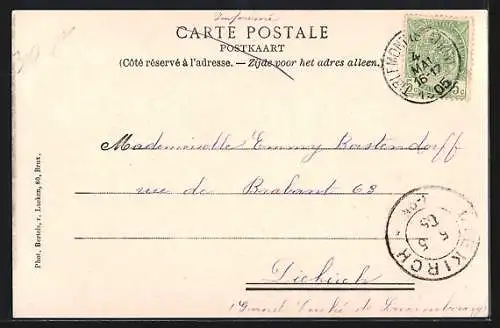 Imprimé
CARTE POSTALE
POSTKAART
(Côté réservé à l'adresse. — Zijde voor het adres alleen.)
4
MAI
16-17
05
5c
Mademoiselle Emmy Kastendorff
rue de Brabant 63
5 5
05
DIEKIRCH
Diekirch
(Grand Duché de Luxembourg)
Phot. Bertels, r. Lesken, 80, Brux.